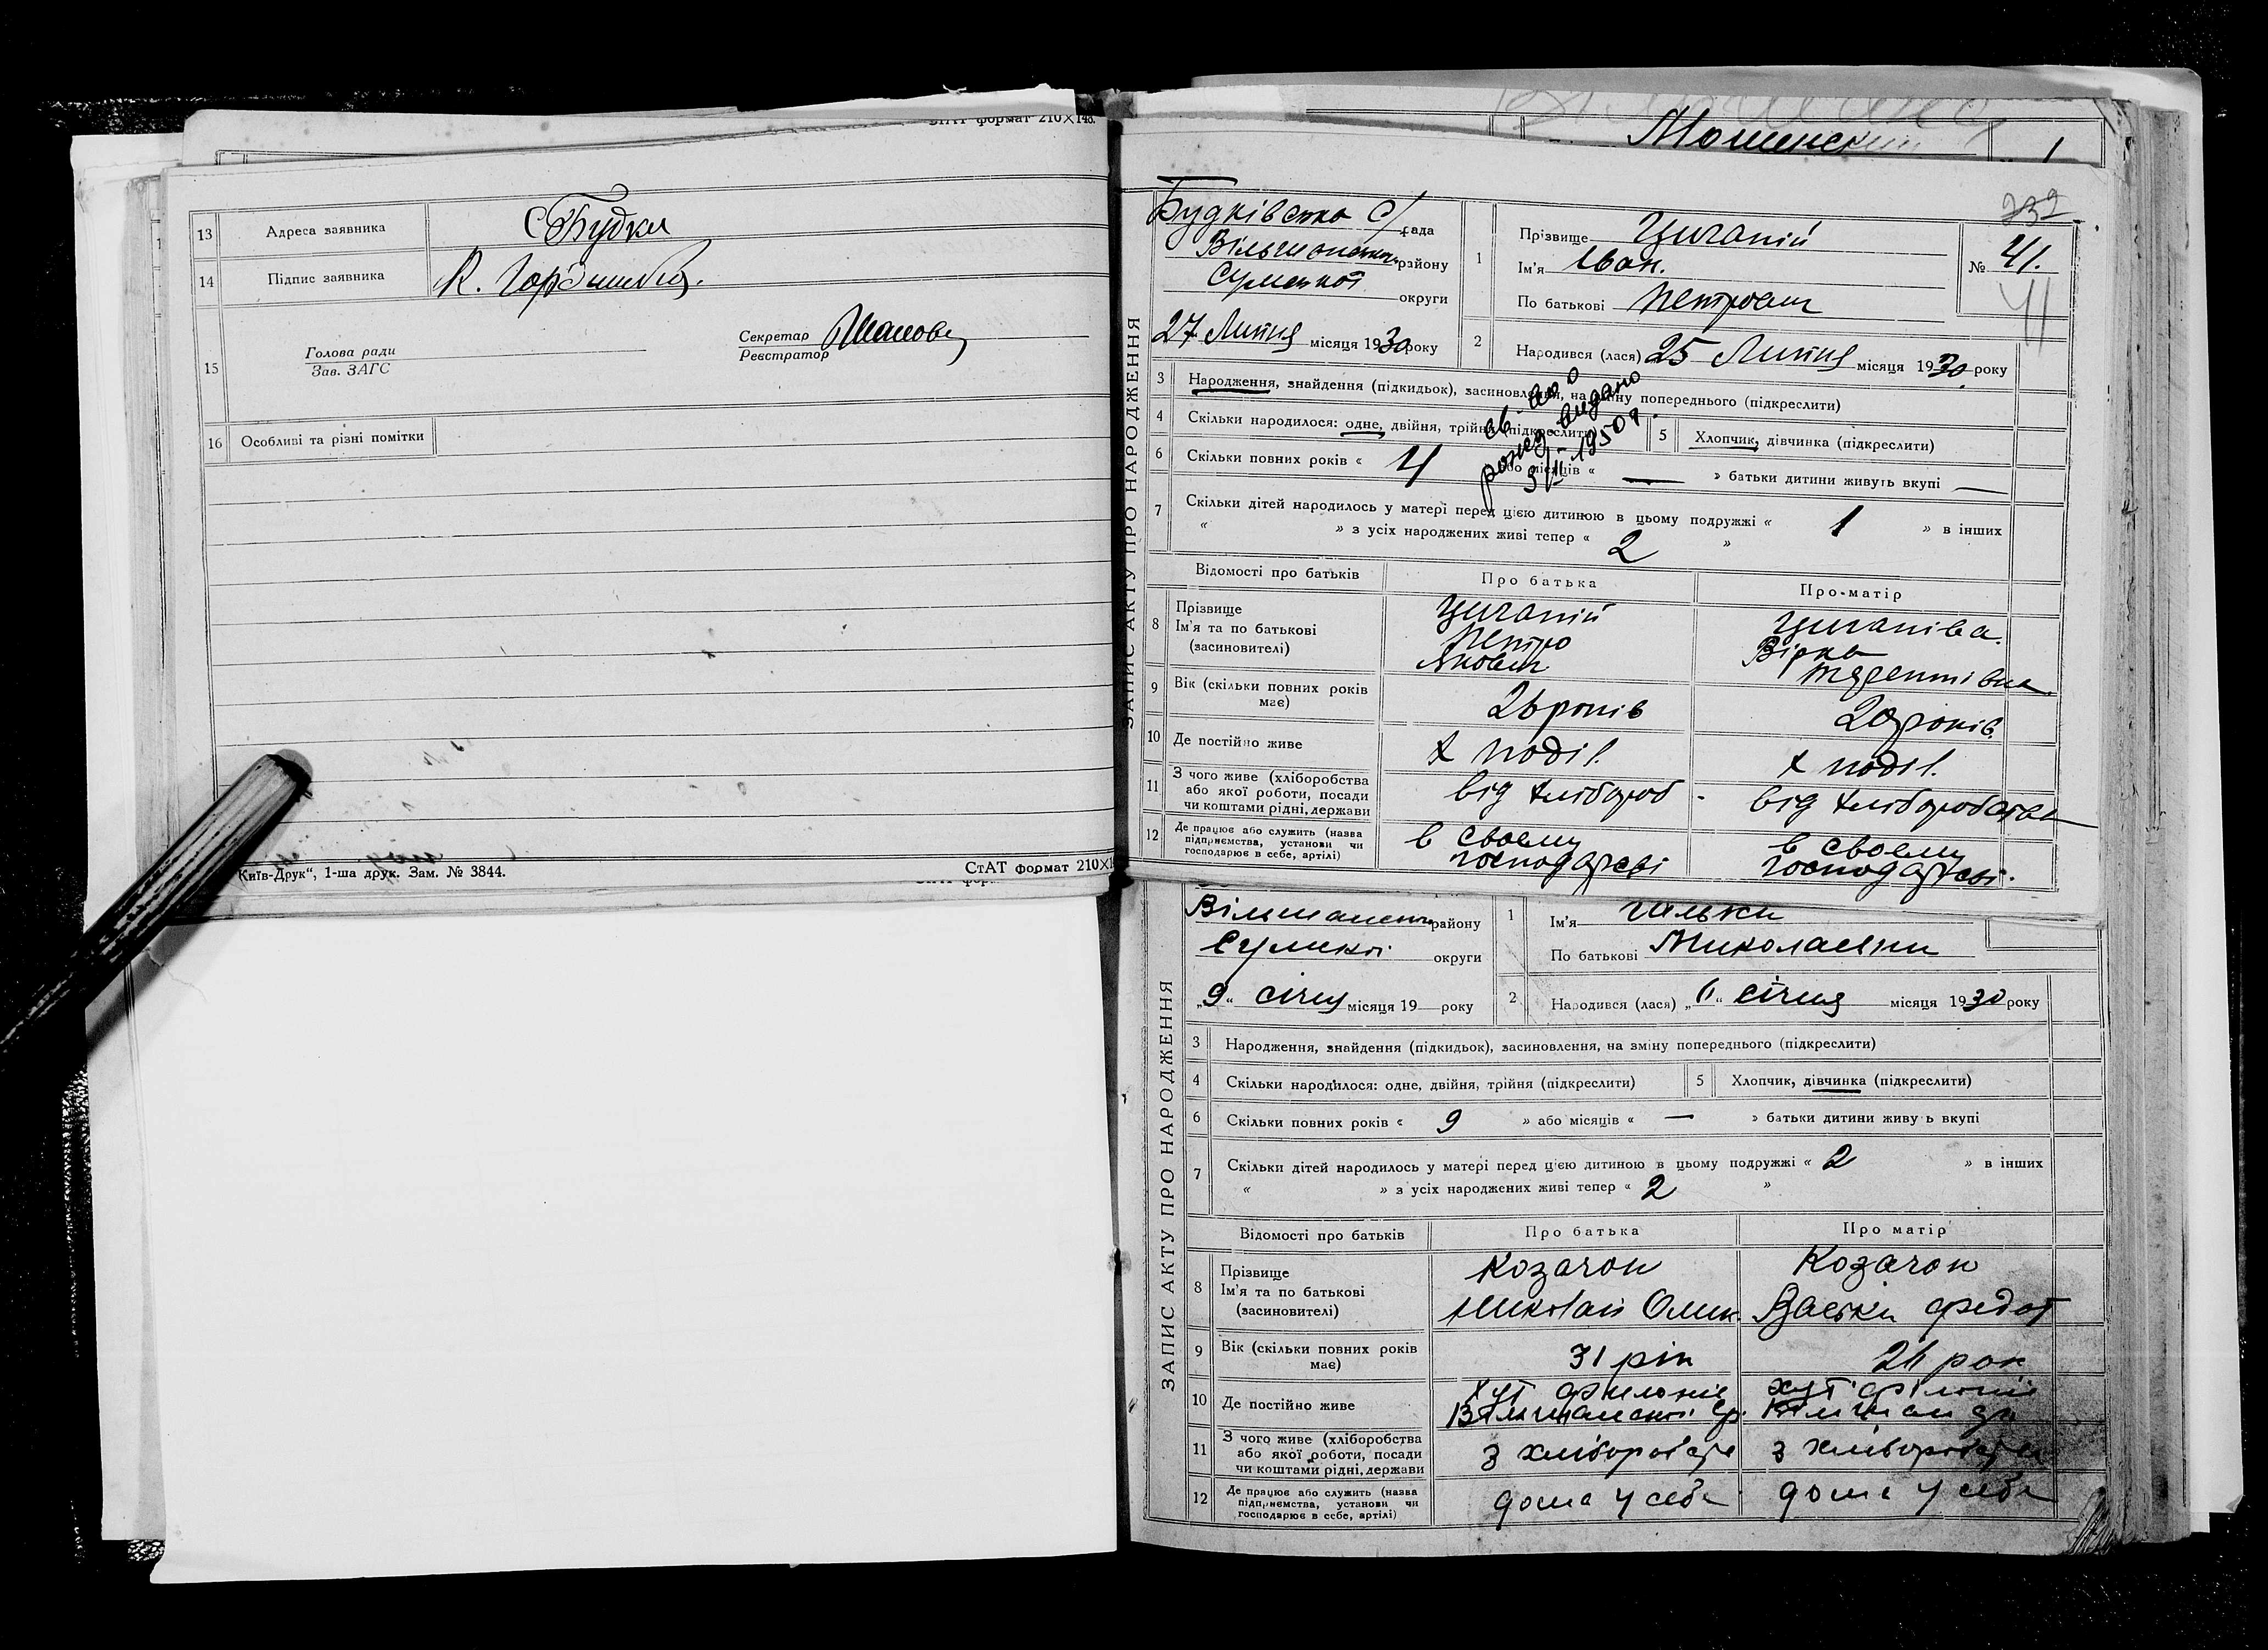 СтАТ формат 210×148.
13 Адреса заявника С Будки
14 Підпис заявника К.
15 Голова ради
Зав. ЗАГС
Секретар
Реєстратор
16 Особливі та різні помітки
Київ-Друк“, 1-ша друк. Зам. № 3844.
СтАТ формат 210×1
ЗАПИС АКТУ ПРО НАРОДЖЕННЯ
232
Будківська С/рада
Вільшанського району
Сумської округи
27 Липня місяця 1930 року
1 Прізвище Циганій
Ім'я Іван.
По батькові Петрович
№ 41.
41
2 Народився (лася) 25 Липня місяця 1930 року
3 Народження, знайдення (підкидьок), засиновлення, на зміну попереднього (підкреслити)
4 Скільки народилося: одне, двійня, трійня (підкреслити)
5 Хлопчик, дівчинка (підкреслити)
св-во о
рожд. видано
1950
6 Скільки повних років « 4 » або місяців « — » батьки дитини живуть вкупі —
7 Скільки дітей народилось у матері перед цією дитиною в цьому подружжі « 1 » в інших
« » з усіх народжених живі тепер « 2 »
Відомості про батьків Про батька Про матір
8 Прізвище
Ім'я та по батькові
(засиновителі)
Циганій
Петро
Якович
Циганіва.
Вірка
9 Вік (скільки повних років має) 26 років 20 років.
10 Де постійно живе х поділ. х поділ.
11 З чого живе (хліборобства
або якої роботи, посади
чи коштами рідні, держави
від хлібороб - від хліборобства
12 Де працює або служить (назва
підприємства, установи чи
господарює в себе, артілі)
в своему
господарсві
в своему
господарсві.
ЗАПИС АКТУ ПРО НАРОДЖЕННЯ
Вільшанського району
Сумської округи
„9“ січня місяця 19 року
1 Ім'я
По батькові Миколаевни
2 Народився (лася) „ “ січня місяця 1930 року
3 Народження, знайдення (підкидьок), засиновлення, на зміну попереднього (підкреслити)
4 Скільки народилося: одне, двійня, трійня (підкреслити)
5 Хлопчик, дівчинка (підкреслити)
6 Скільки повних років « 9 » або місяців « — » батьки дитини живу ь вкупі
7 Скільки дітей народилось у матері перед цією дитиною в цьому подружжі « 2 » в інших
« » з усіх народжених живі тепер « 2 »
Відомості про батьків Про батька Про матір
8 Прізвище
Ім'я та по батькові
(засиновителі)
Козачок
Николай
Козачок
Федот
9 Вік (скільки повних років має) 31 рік рок
10 Де постійно живе
хут
хут
11 З чого живе (хліборобства
або якої роботи, посади
чи коштами рідні, держави
з хліборобства
з хліборобства
12 Де працює або служить (назва
підприємства, установи чи
господарює в себе, артілі)
дома у себе
дома у себе